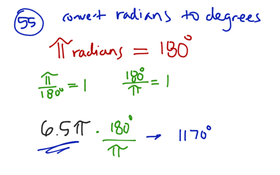 55 convert radians to degrees
π radians = 180°
π/180° = 1 180°/π = 1
6.5π · 180°/π → 1170°